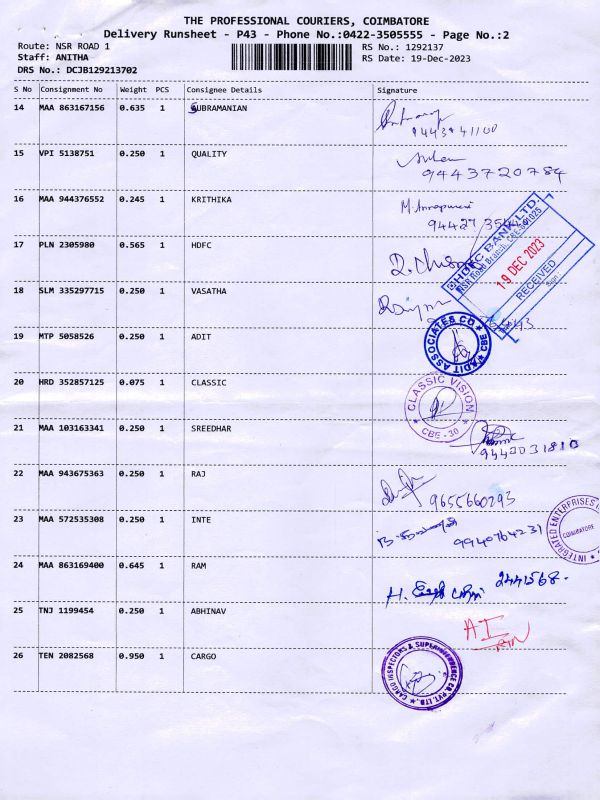 THE PROFESSIONAL COURIERS, COIMBATORE
Delivery Runsheet - P43 - Phone No.:0422-3505555 - Page No.:2
Route: NSR ROAD 1 RS No.: 1292137
Staff: ANITHA RS Date: 19-Dec-2023
DRS No.: DCJB129213702
S No Consignment No Weight PCS Consignee Details Signature
14 MAA 863167156 0.635 1 SUBRAMANIAN
15 VPI 5138751 0.250 1 QUALITY
9443720784
16 MAA 944376552 0.245 1 KRITHIKA
17 PLN 2305980 0.565 1 HDFC
HDFC BANK LTD.
NSR Road Branch, CBE-641025
19 DEC 2023
RECEIVED
18 SLM 335297715 0.250 1 VASATHA
19 MTP 5058526 0.250 1 ADIT
ADIT ASSOCIATES CO CBE
20 HRD 352857125 0.075 1 CLASSIC
CLASSIC VISION
CBE - 30
21 MAA 103163341 0.250 1 SREEDHAR
22 MAA 943675363 0.250 1 RAJ
9655660293
23 MAA 572535308 0.250 1 INTE
9940764231
INTEGRATED ENTERPRISES
COIMBATORE
24 MAA 863169400 0.645 1 RAM
2441568.
25 TNJ 1199454 0.250 1 ABHINAV
26 TEN 2082568 0.950 1 CARGO
CARGO INSPECTORS & SUPERINTENDENCE CO. PVT. LTD.